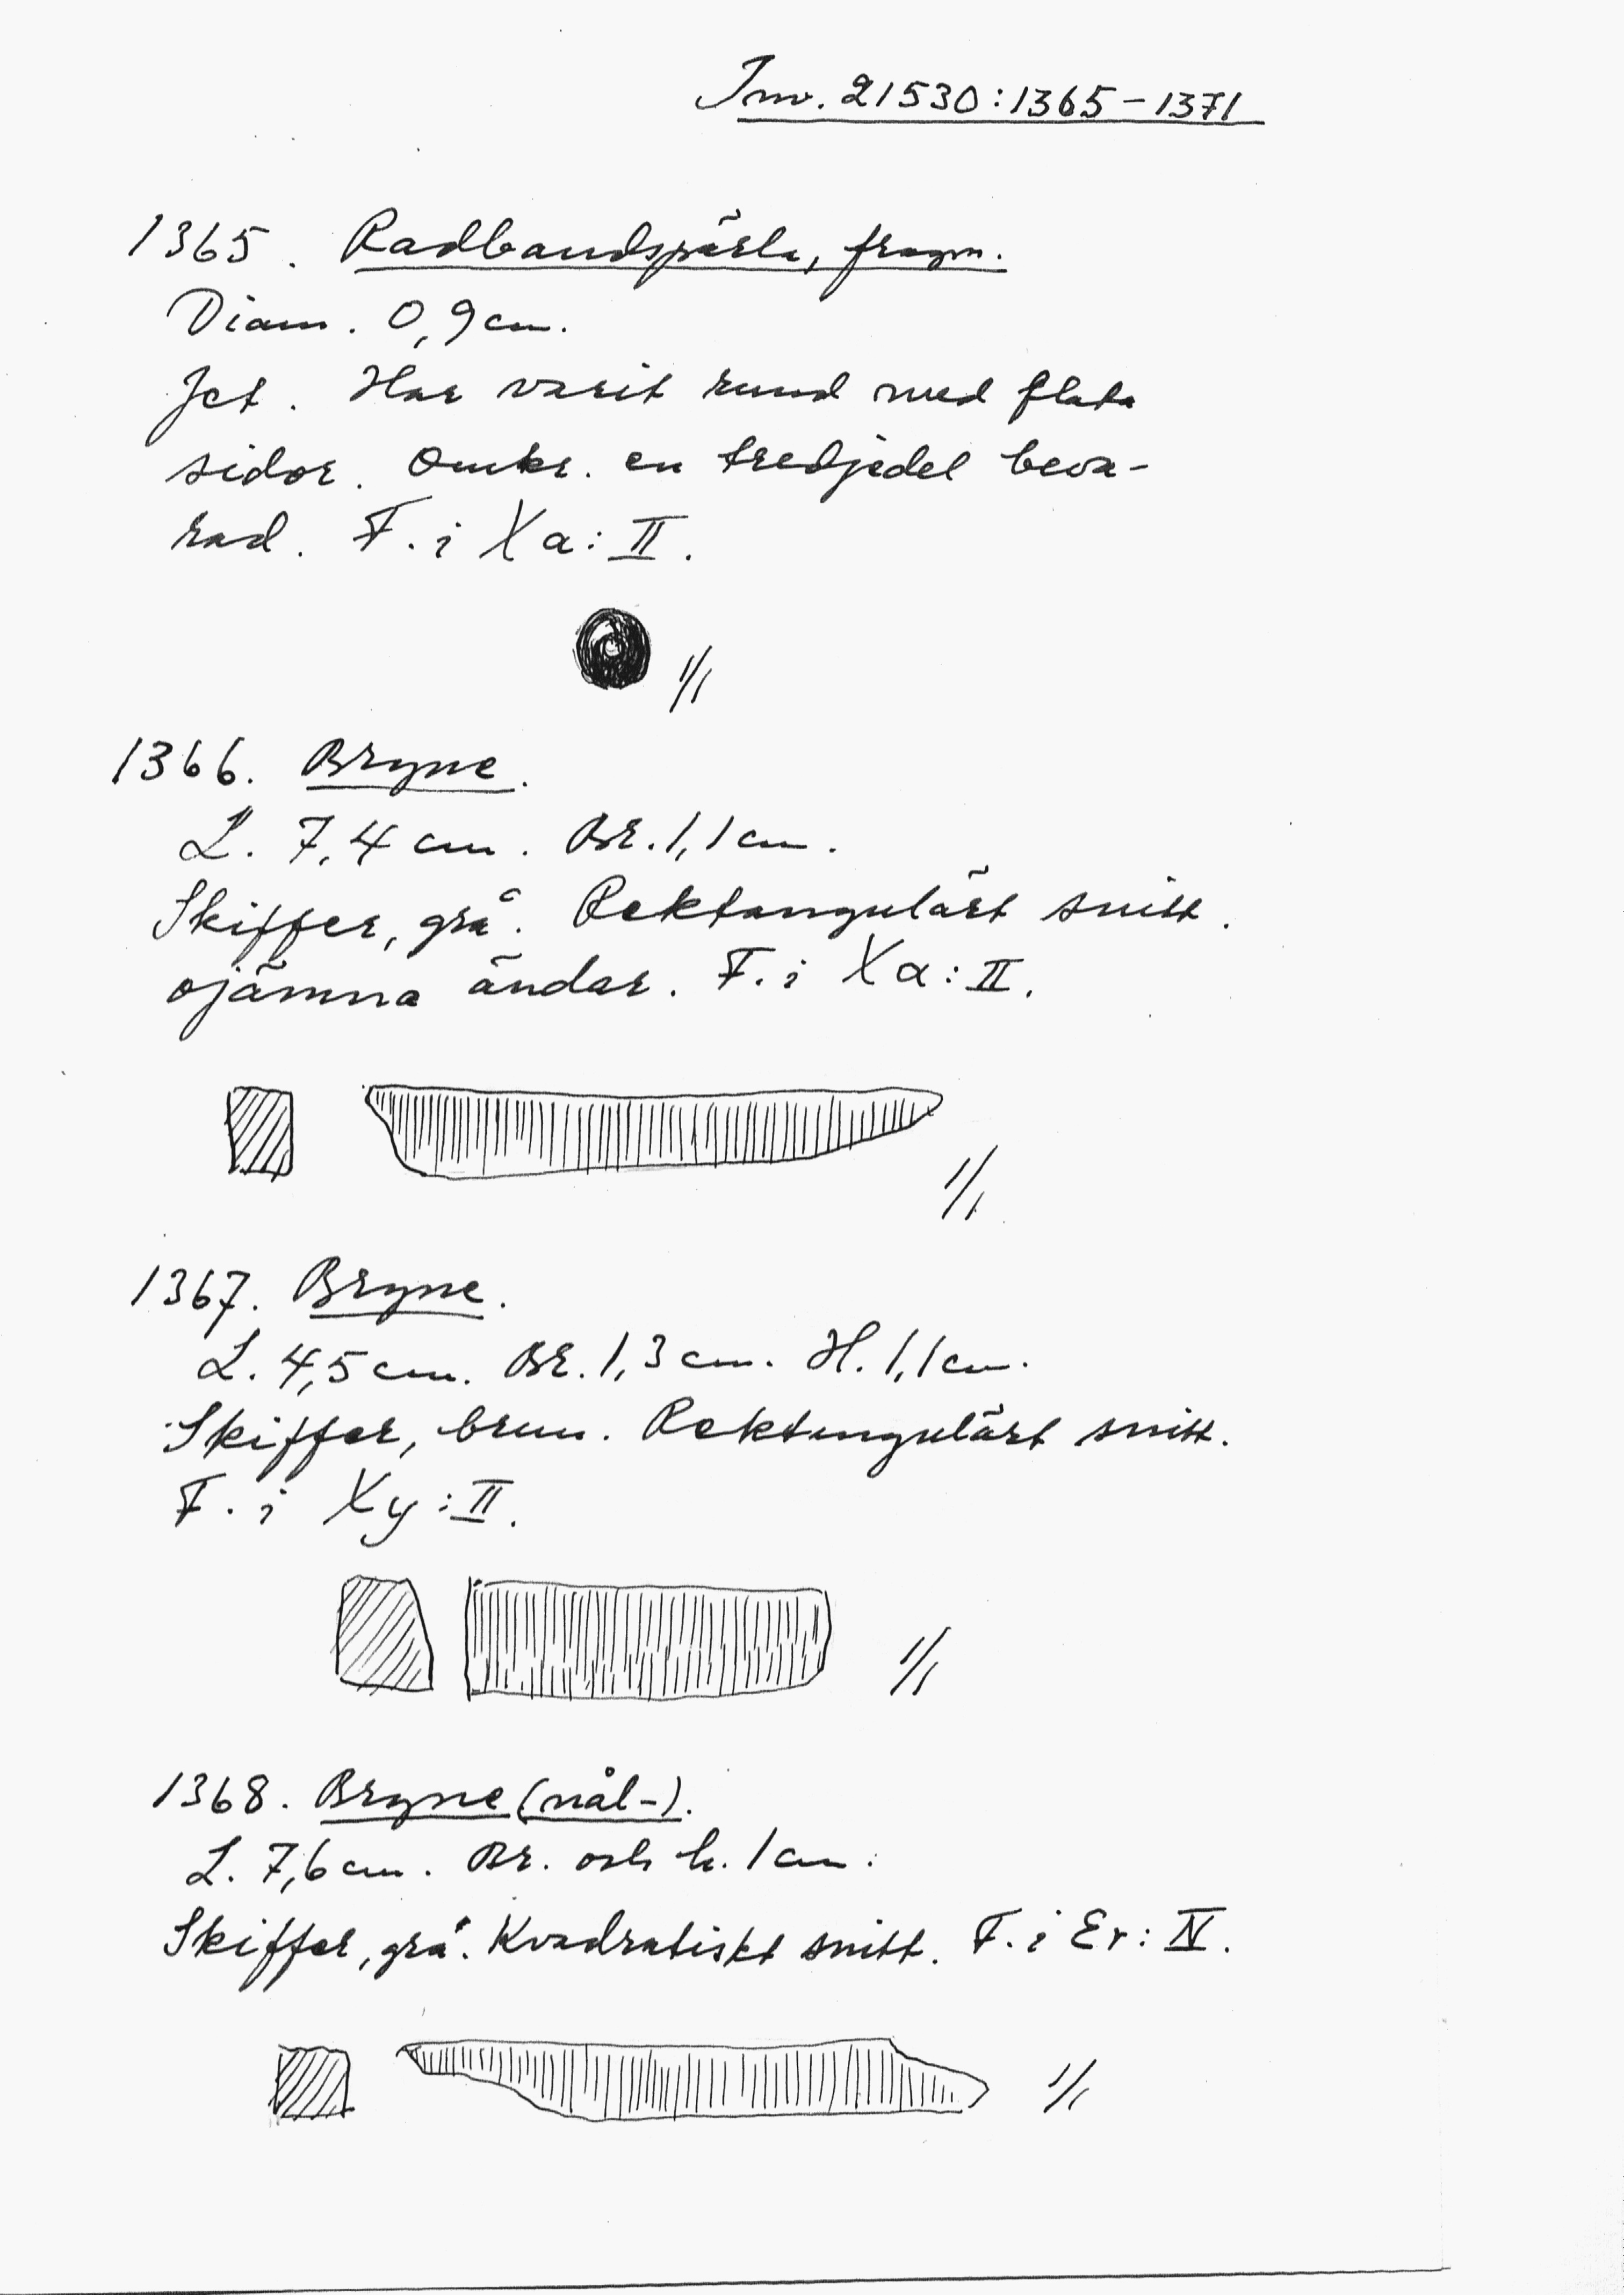 Inv. 21530:1365-1371
1365. Radbandspärla, fragm.
Diam. 0,9 cm.
Jet. Har varit rund med flata
sidor. Omkr. en tredjedel beva-
rad. F. i Xa: II.
1/1
1366. Bryne.
L. 7,4 cm. Br. 1,1 cm.
Skiffer, grå. Rektangulärt snitt.
ojämna ändar. F. i Xa: II.
1/1
1367. Bryne.
L. 4,5 cm. Br. 1,3 cm. H. 1,1 cm.
Skiffer, brun. Rektangulärt snitt.
F. i Xy: II.
1/1
1368. Bryne (nål-).
L. 7,6 cm. Br. och h. 1 cm.
Skiffer, grå. Kvadratiskt snitt. F. i Er: IV.
1/1